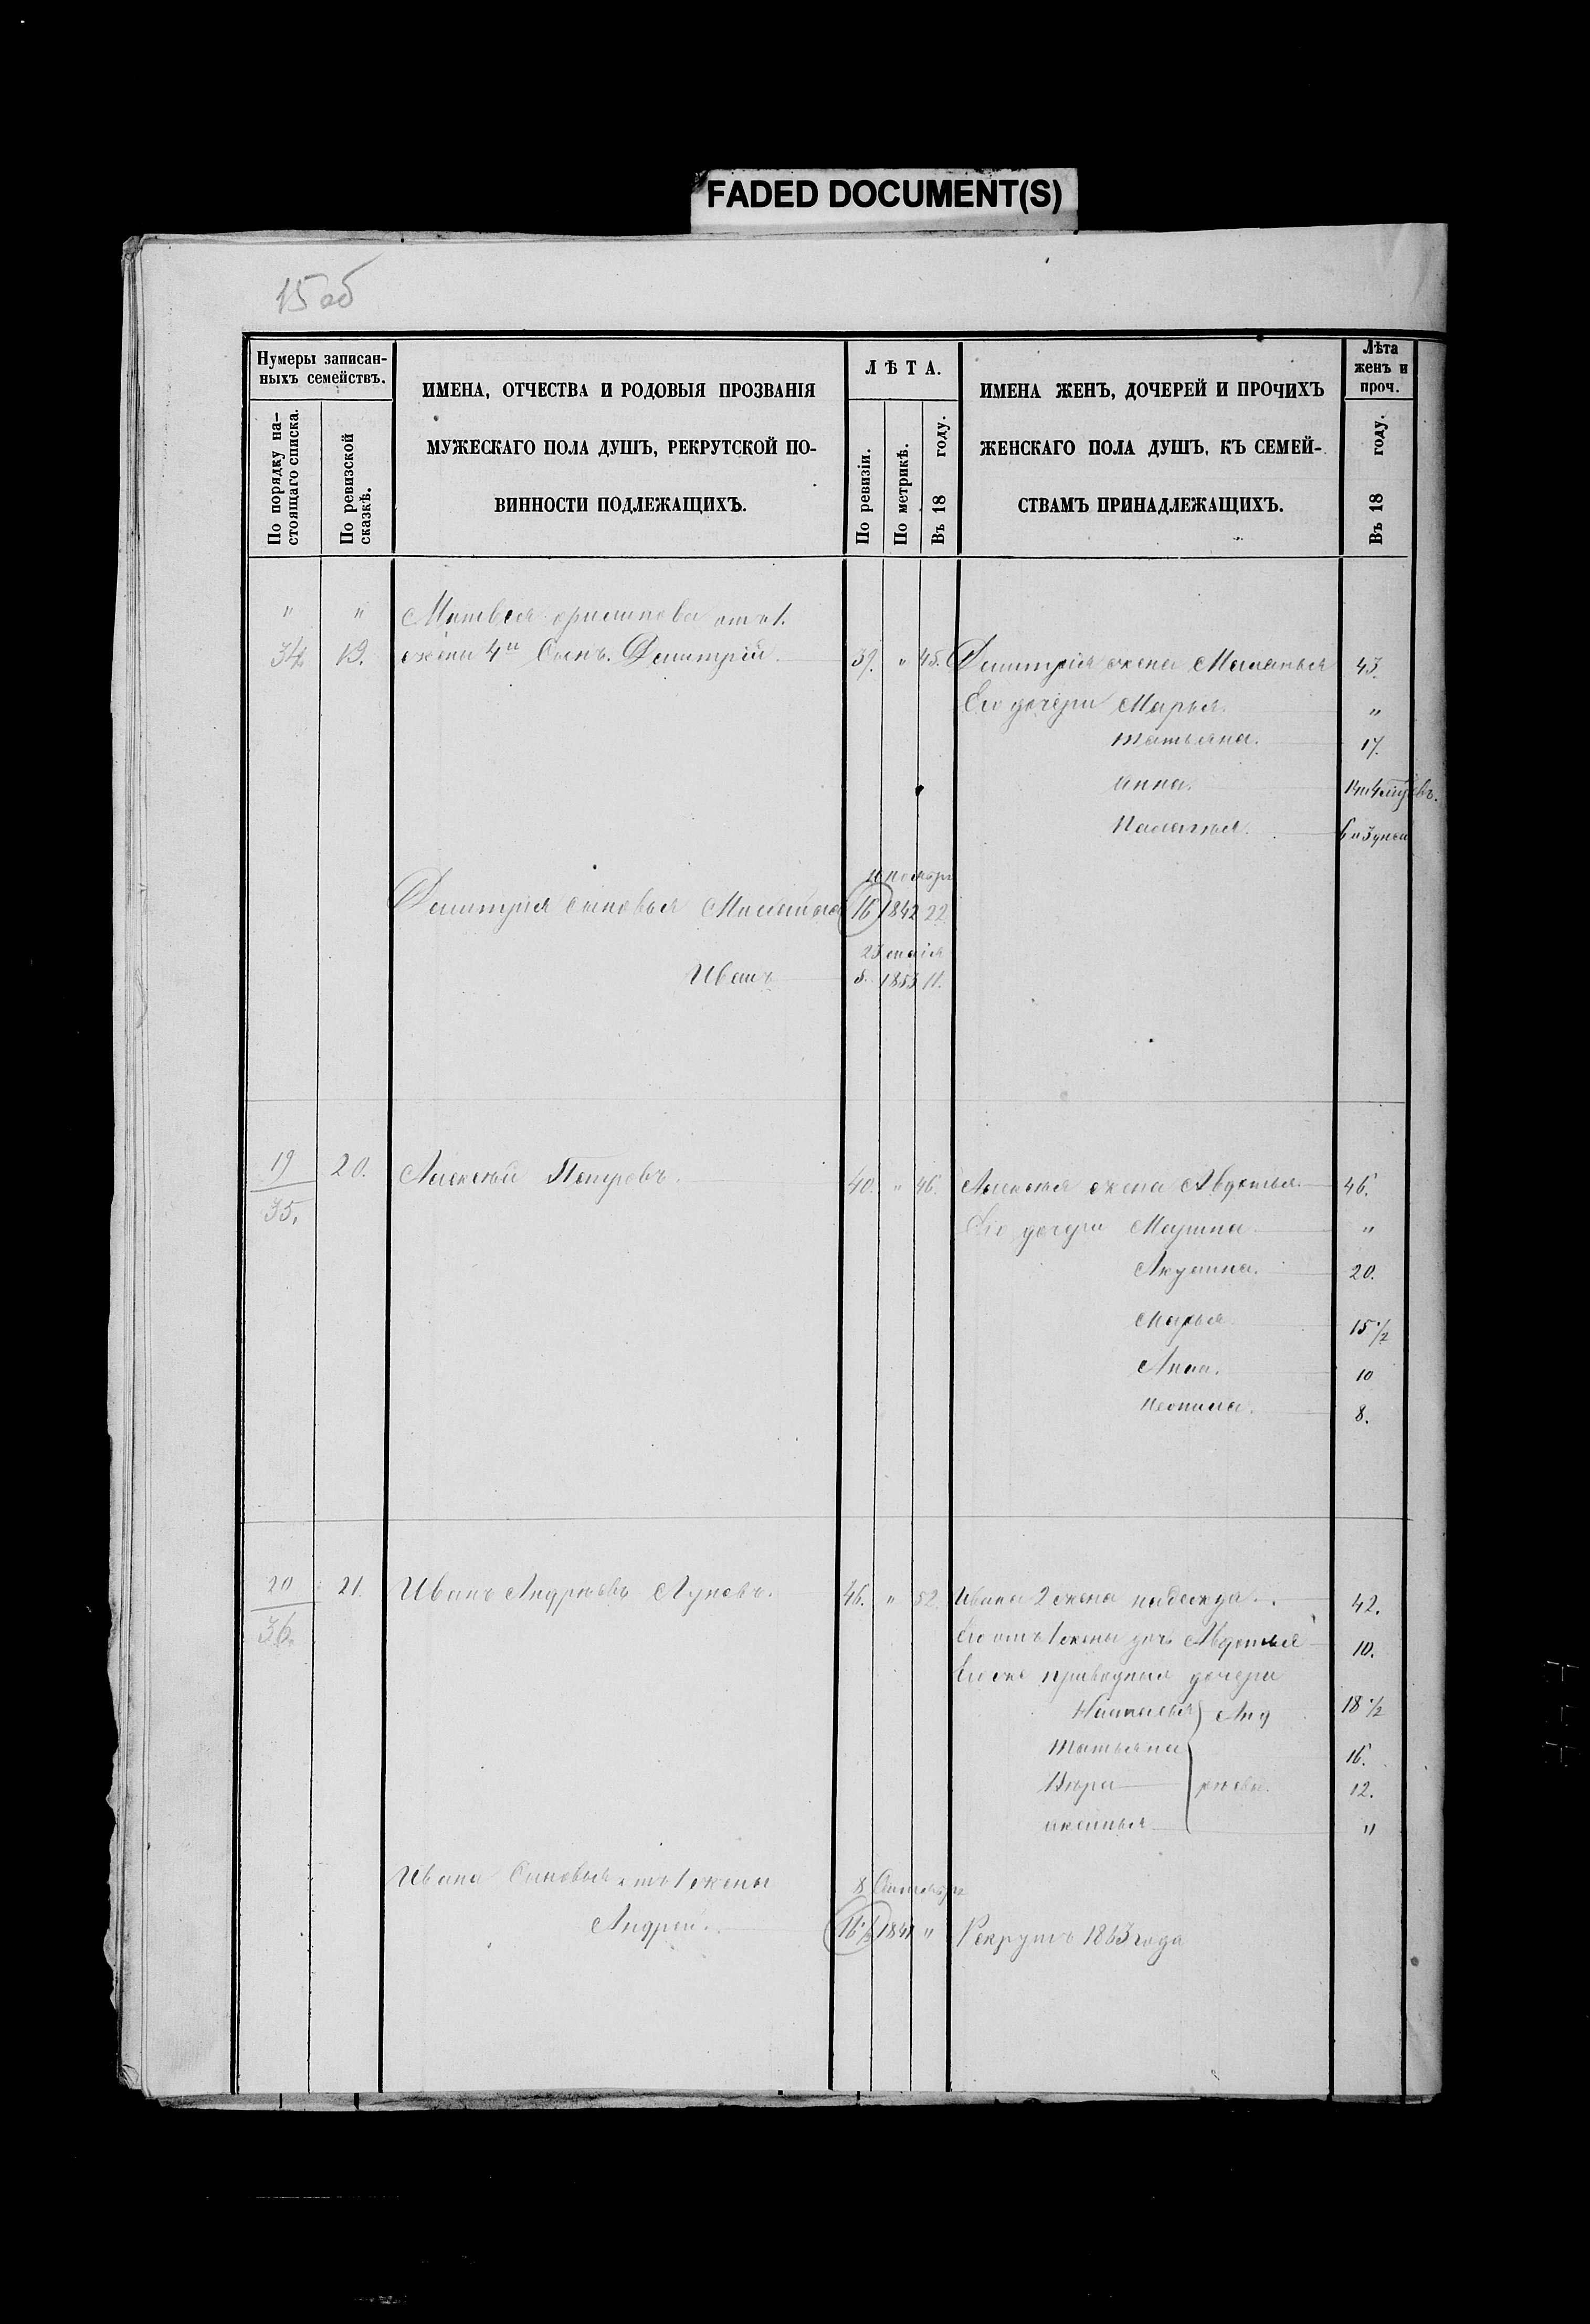 FADED DOCUMENT(S)
15 об
Нумеры записан-
ныхъ семействъ.
По порядку на-
стоящаго списка.
По ревизской
сказкѣ.
ИМЕНА, ОТЧЕСТВА И РОДОВЫЯ ПРОЗВАНІЯ
МУЖЕСКАГО ПОЛА ДУШЪ, РЕКРУТСКОЙ ПО-
ВИННОСТИ ПОДЛЕЖАЩИХЪ.
ЛѢТА.
По ревизіи.
По метрикѣ.
Въ 18 году.
ИМЕНА ЖЕНЪ, ДОЧЕРЕЙ И ПРОЧИХЪ
ЖЕНСКАГО ПОЛА ДУШЪ, КЪ СЕМЕЙ-
СТВАМЪ ПРИНАДЛЕЖАЩИХЪ.
Лѣта
женъ и
проч.
Въ 18 году.
" " Матвея отъ 1.
34. 19. жены 4й Сынъ. Дмитрій 39. " 45. Дмитрія жена Маланья 43.
Его дочери Марья. "
татьяна. 17.
анна.
Палагия.
ноября
Дмитрія сыновья 16 1842 22
23 маія
Иванъ 5. 1853 11.
19 20. Алексѣй Петровъ. 40. " 46. Алексѣя жена Авдотья 46.
35. Его дочери Марина "
Акулина. 20.
Марья 15 1/2
Анна. 10
Неонила. 8.
20 21. Иванъ Андрѣевъ Луневъ. 46. " 52. Ивана 2 жена надежда. 42.
36. Его отъ 1 жены дочь Авдотья 10.
Его же приводныя дочери
Наталья Анд 18 1/2
Татьяна 16.
Вѣра рѣевы. 12.
аксинья "
Ивана Сыновья отъ 1 жены 8 Сентября
Андрей. 16 1/2 1841 " Рекрутъ 1863 года